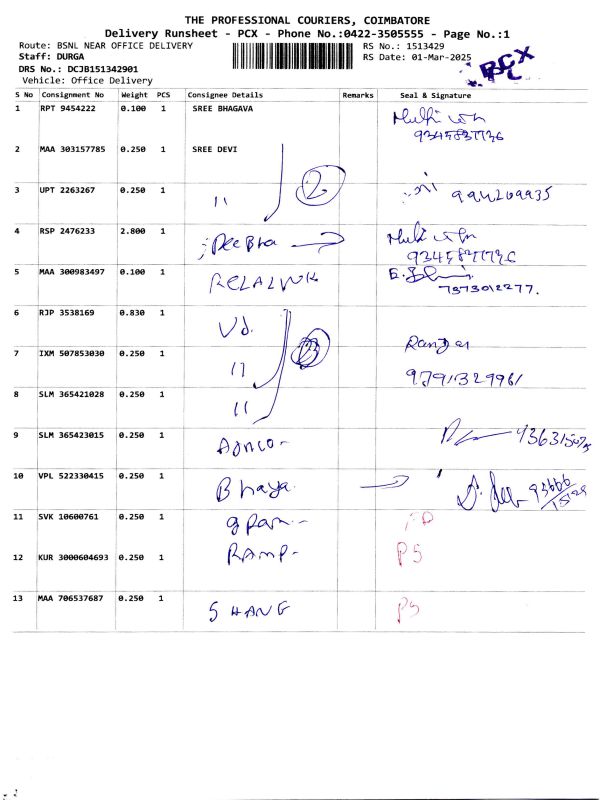 THE PROFESSIONAL COURIERS, COIMBATORE
Delivery Runsheet - PCX - Phone No.:0422-3505555 - Page No.:1
Route: BSNL NEAR OFFICE DELIVERY RS No.: 1513429
Staff: DURGA RS Date: 01-Mar-2025
DRS No.: DCJB151342901
Vehicle: Office Delivery
PCX
S No Consignment No Weight PCS Consignee Details Remarks Seal & Signature
1 RPT 9454222 0.100 1 SREE BHAGAVA
2 MAA 303157785 0.250 1 SREE DEVI
3 UPT 2263267 0.250 1 11 2
4 RSP 2476233 2.800 1
5 MAA 300983497 0.100 1 7373012277.
6 RJP 3538169 0.830 1 Vd.
7 IXM 507853030 0.250 1 11
8 SLM 365421028 0.250 1 11
9 SLM 365423015 0.250 1
10 VPL 522330415 0.250 1 Bhaya.
11 SVK 10600761 0.250 1
12 KUR 3000604693 0.250 1 RAMP- PS
13 MAA 706537687 0.250 1 SHANG PS